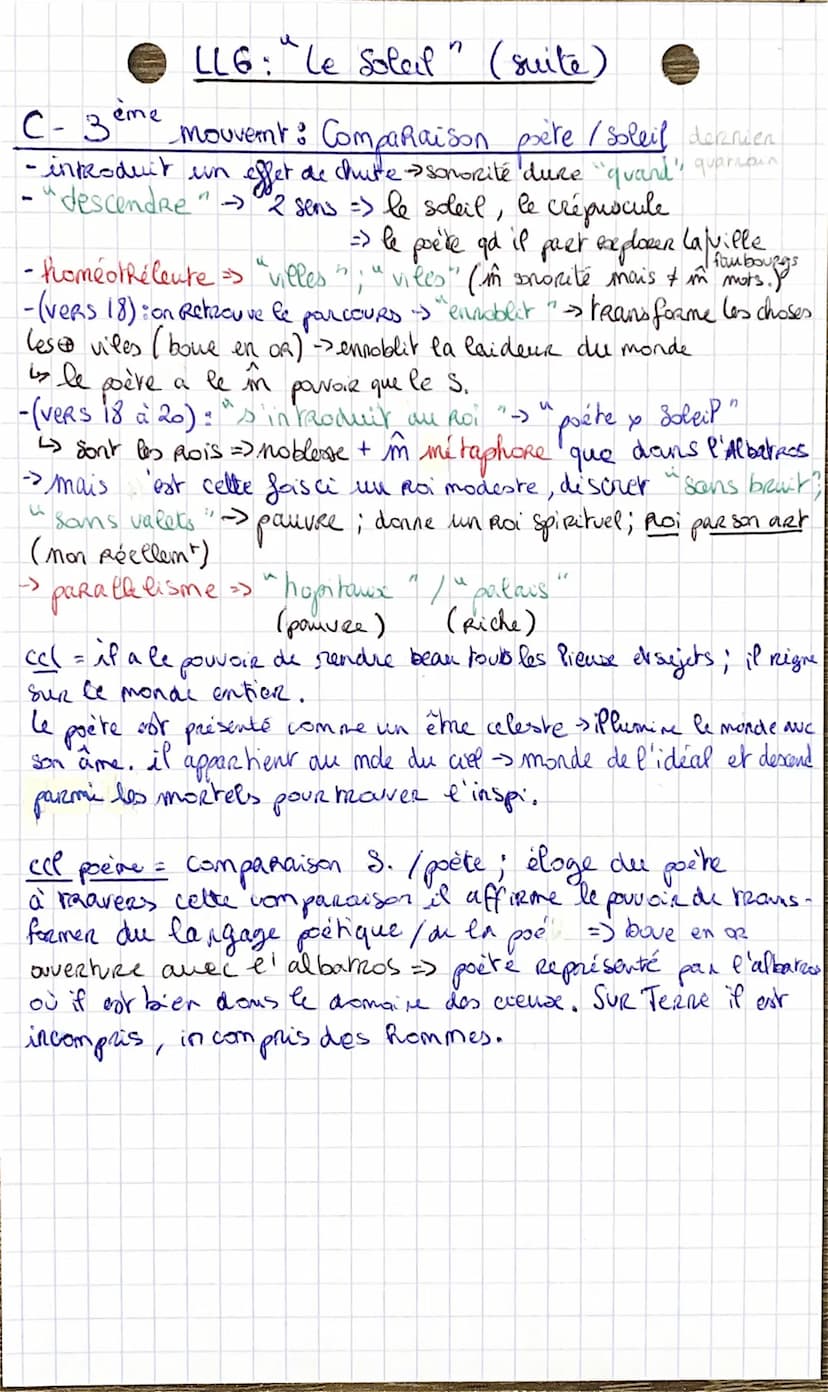 LL6 : "Le Soleil" (suite)
C - 3ème mouvemt : Comparaison poète / Soleil dernier
quatrain
- introduit un effet de chute → sonorité dure "quand",
- "descendre" → 2 sens => le soleil, le crépuscule
=> le poète qd il part explorer la ville
faubourgs
- homéotéleute => "villes" ; "viles" (m̂ sonorité mais ≠ m̂ mots.)
- (vers 18) : on retrouve le parcours → "ennoblit" → transforme les choses
les ⊕ viles (boue en or) → ennoblit la laideur du monde
↳ le poète a le m̂ pouvoir que le S.
- (vers 18 à 20) : "s'introduit au roi" → "poète Soleil"
↳ sont les rois => noblesse + m̂ métaphore que dans l'Albatros
→ mais 'est cette fois ci un roi modeste, discret "sans bruit",
"sans valets" → pauvre ; donne un roi spirituel ; roi par son art
(non réellemt)
→ parallélisme => "hopitaux" / "palais"
(pauvre) (riche)
ccl = il a le pouvoir de rendre beau touts les lieux et sujets ; il règne
sur le monde entier.
Le poète est présenté comme un être celeste → illumine le monde avc
son âme. il appartient au mde du ciel → monde de l'idéal et descend
parmi les mortels pour trouver l'inspi.
ccl poème = Comparaison S. / poète ; éloge du poète
à travers cette comparaison il affirme le pouvoir de trans-
former du langage poétique / de la poé => boue en or
ouverture avec l'albatros => poète représenté par l'albatros
où il est bien dans le domaine des cieux. Sur Terre il est
incompris, incompris des hommes.